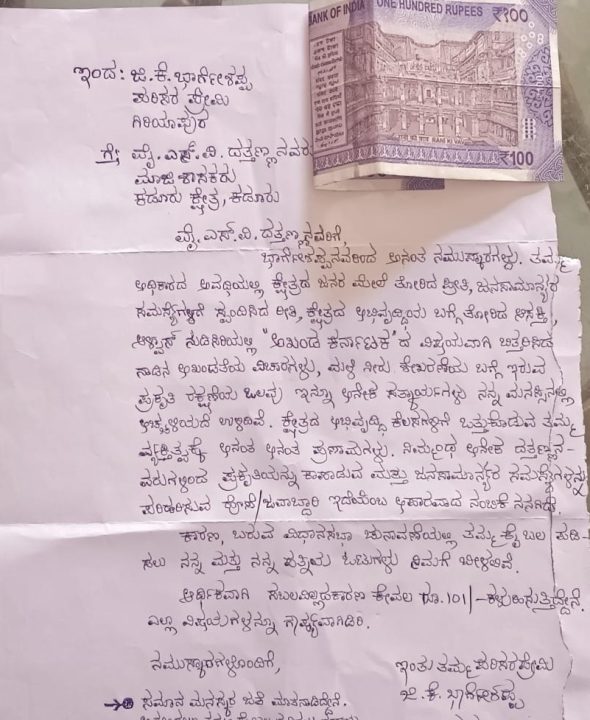 BANK OF INDIA ONE HUNDRED RUPEES ₹100
RANI KI VAV
₹100
ಇಂದ: ಜಿ.ಕೆ. ಭಾರ್ಗೇಶಪ್ಪ
ಪರಿಸರ ಪ್ರೇಮಿ
ಗಿರಿಯಾಪುರ
ಗೆ, ವೈ.ಎಸ್.ವಿ. ದತ್ತಣ್ಣನವರು
ಮಾಜಿ ಶಾಸಕರು
ಕಡೂರು ಕ್ಷೇತ್ರ, ಕಡೂರು
ವೈ.ಎಸ್.ವಿ. ದತ್ತಣ್ಣನವರಿಗೆ,
ಭಾರ್ಗೇಶಪ್ಪನವರಿಂದ ಅನಂತ ನಮಸ್ಕಾರಗಳು. ತಮ್ಮ
ಅಧಿಕಾರದ ಅವಧಿಯಲ್ಲಿ ಕ್ಷೇತ್ರದ ಜನರ ಮೇಲೆ ತೋರಿದ ಪ್ರೀತಿ, ಜನಸಾಮಾನ್ಯರ
ಸಮಸ್ಯೆಗಳಿಗೆ ಸ್ಪಂದಿಸಿದ ರೀತಿ, ಕ್ಷೇತ್ರದ ಅಭಿವೃದ್ಧಿಯ ಬಗ್ಗೆ ತೋರಿದ ಆಸಕ್ತಿ,
ನುಡಿಸಿರಿಯಲ್ಲಿ "ಅಖಂಡ ಕರ್ನಾಟಕ"ದ ವಿಷಯವಾಗಿ ಬಿತ್ತರಿಸಿದ
ನಾಡಿನ ಅಖಂಡತೆಯ ವಿಚಾರಗಳು, ಮಳೆ ನೀರು ಶೇಖರಣೆಯ ಬಗ್ಗೆ ಇರುವ
ಪ್ರಕೃತಿ ರಕ್ಷಣೆಯ ಒಲವು ಇನ್ನೂ ಅನೇಕ ಸತ್ಕಾರ್ಯಗಳು ನನ್ನ ಮನಸ್ಸಿನಲ್ಲಿ
ಅಚ್ಚಳಿಯದೆ ಉಳಿದಿವೆ. ಕ್ಷೇತ್ರದ ಅಭಿವೃದ್ಧಿ ಕೆಲಸಗಳಿಗೆ ಒತ್ತುಕೊಡುವ ತಮ್ಮ
ವ್ಯಕ್ತಿತ್ವಕ್ಕೆ ಅನಂತ ಅನಂತ ಪ್ರಣಾಮಗಳು. ನಿಮ್ಮಂಥ ಅನೇಕ ದತ್ತಣ್ಣನ-
ವರುಗಳಿಂದ ಪ್ರಕೃತಿಯನ್ನು ಕಾಪಾಡುವ ಮತ್ತು ಜನಸಾಮಾನ್ಯರ ಸಮಸ್ಯೆಗಳನ್ನು
ಪರಿಹರಿಸುವ ಹೊಣೆ/ಜವಾಬ್ದಾರಿ ಇದೆಯೆಂಬ ಅಪಾರವಾದ ನಂಬಿಕೆ ನನಗಿದೆ.
ಕಾರಣ, ಬರುವ ವಿಧಾನಸಭಾ ಚುನಾವಣೆಯಲ್ಲಿ ತಮ್ಮ ಕೈ ಬಲ ಪಡಿ-
ಸಲು ನನ್ನ ಮತ್ತು ನನ್ನ ಪತ್ನಿಯ ಓಟುಗಳು ನಿಮಗೆ ಬೀಳಲಿವೆ.
ಆರ್ಥಿಕವಾಗಿ ಸಬಲವಿಲ್ಲದಕಾರಣ ಕೇವಲ ರೂ.101/-ಕಳುಹಿಸುತ್ತಿದ್ದೇನೆ.
ಎಲ್ಲಾ ವಿಷಯಗಳನ್ನು ಗೌಪ್ಯವಾಗಿಡಿರಿ.
ನಮಸ್ಕಾರಗಳೊಂದಿಗೆ,
ಇಂತು ತಮ್ಮ ಪರಿಸರಪ್ರೇಮಿ
ಜಿ.ಕೆ. ಭಾರ್ಗೇಶಪ್ಪ
ಸಮಾನ ಮನಸ್ಕರ ಜತೆ ಮಾತನಾಡಿದ್ದೇನೆ.